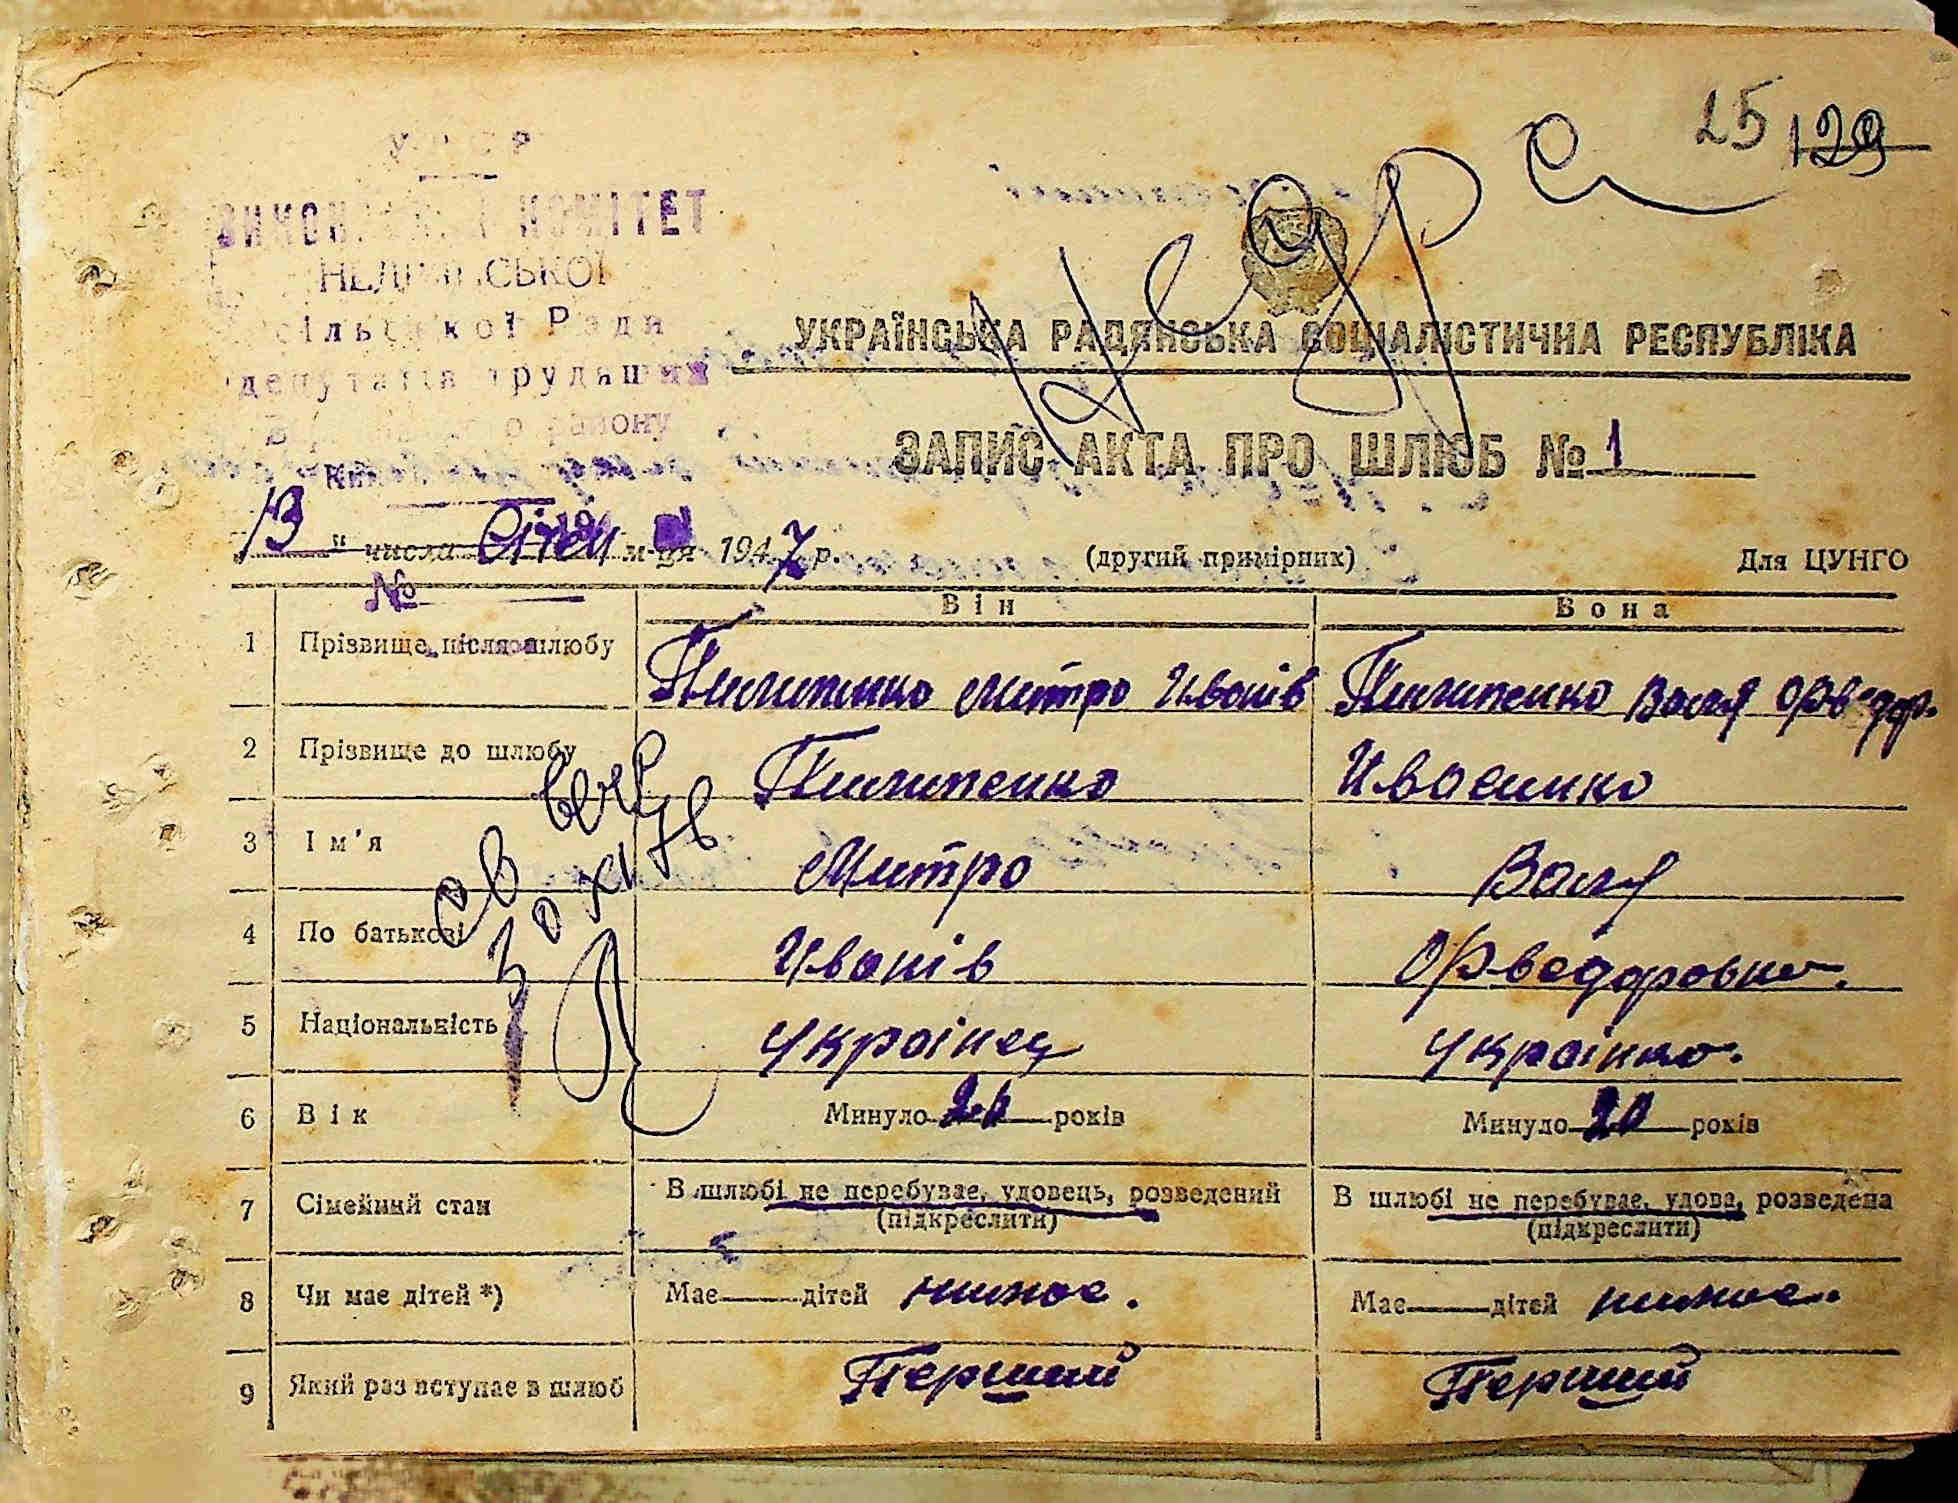 25 129
КОМІТЕТ
сільської Ради
депутатів трудящих
району
УКРАЇНСЬКА РАДЯНСЬКА СОЦІАЛІСТИЧНА РЕСПУБЛІКА
ЗАПИС АКТА ПРО ШЛЮБ № 1
13 " числа Січен м-ця 1947 р. (другий примірник) Для ЦУНГО
№
Він Вона
1 Прізвище після шлюбу Пилипенко Митро Иванів Пилипенко Валя Офведор.
2 Прізвище до шлюбу Пилипенко Иваенко
3 Ім'я Митро Валя
4 По батькові Иванів Офведоровна.
5 Національність українец українка.
6 Вік Минуло років Минуло 20 років
30 XI 76
7 Сімейний стан В шлюбі не перебуває, удовець, розведений В шлюбі не перебуває, удова, розведена
(підкреслити) (підкреслити)
8 Чи має дітей *) Має дітей нимає. Має дітей нимає.
9 Який раз вступає в шлюб Перший Перший